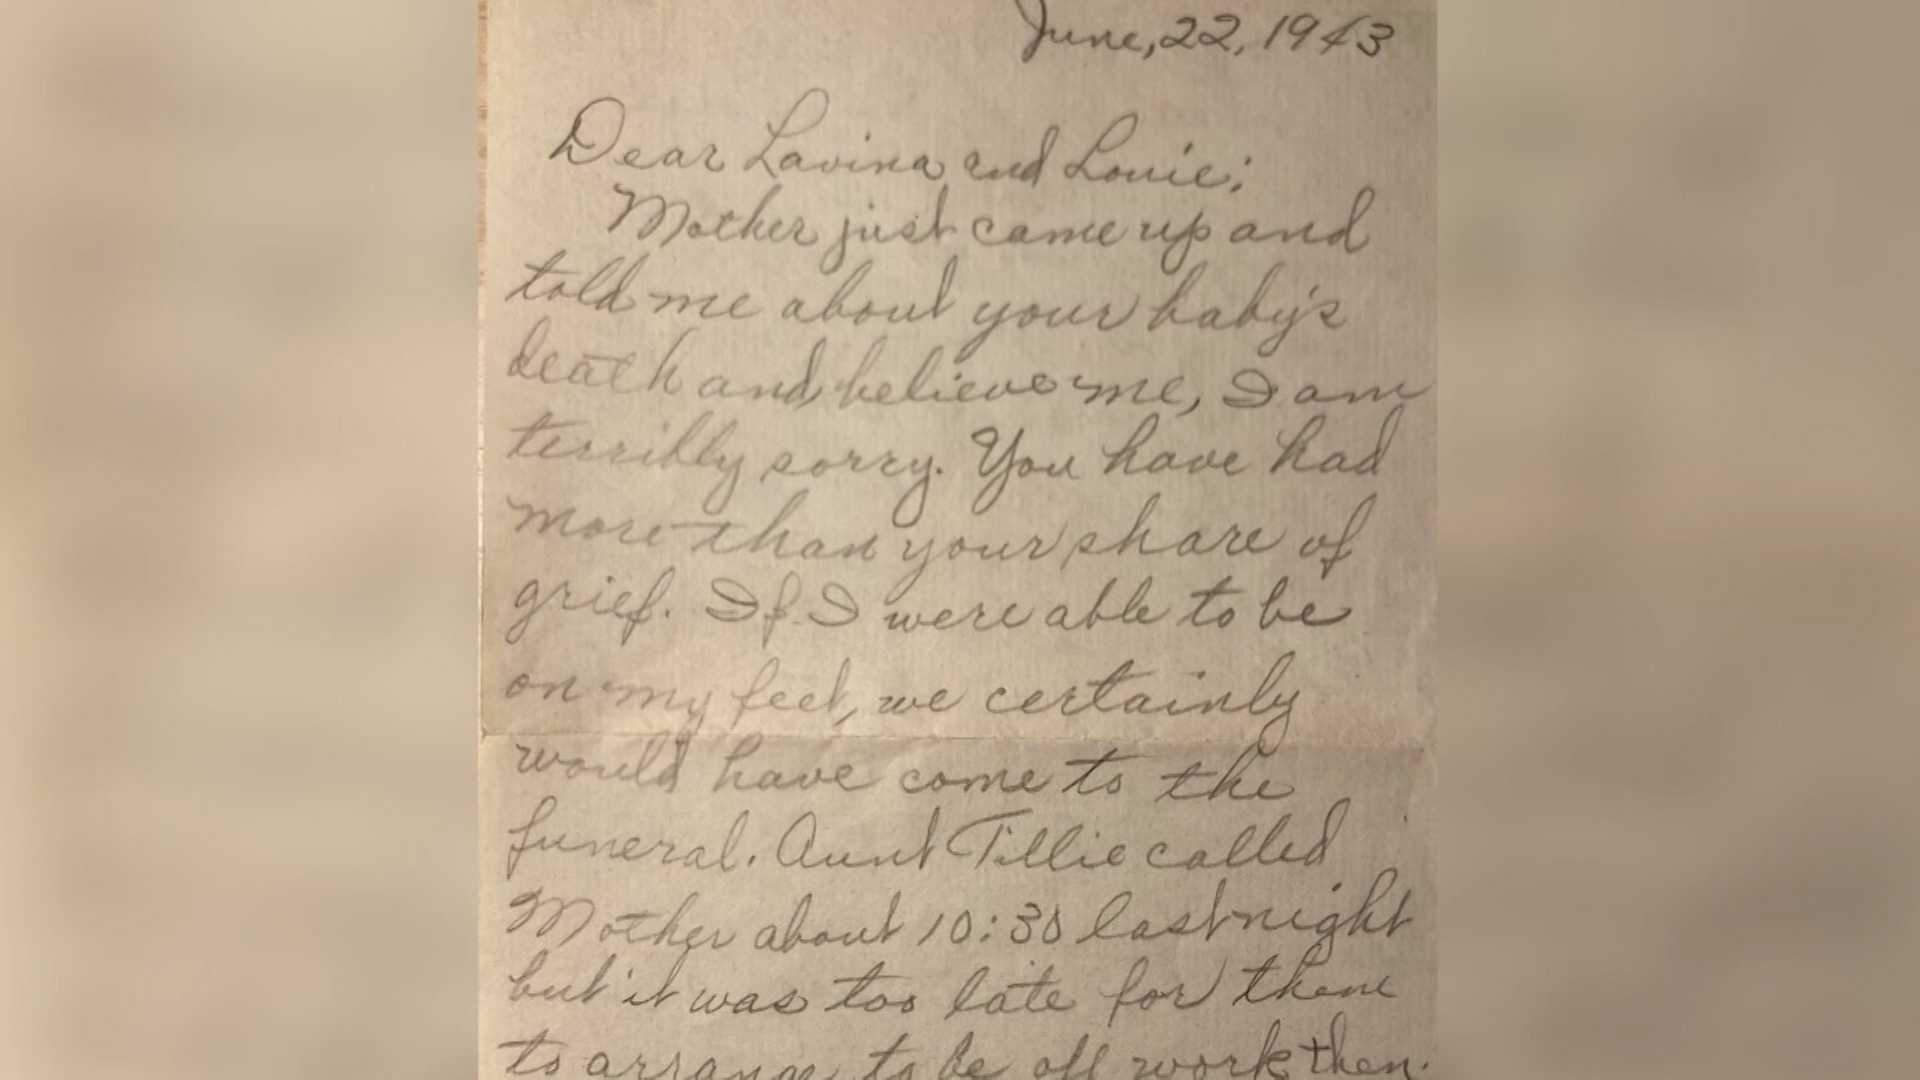 June, 22, 1943
Dear Lavina and Louie;
Mother just came up and
told me about your baby's
death and believe me, I am
terribly sorry. You have had
more than your share of
grief. If I were able to be
on my feet, we certainly
would have come to the
funeral. Aunt Tillie called
Mother about 10:30 last night
but it was too late for them
to arrange to be off work then.